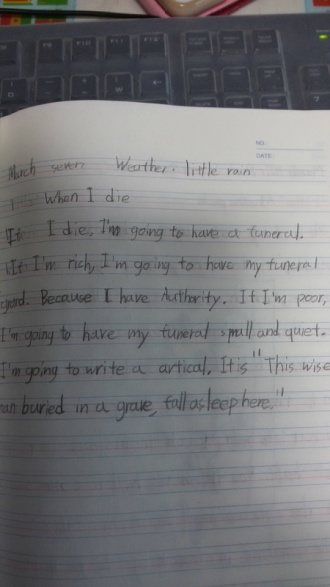 NO.
DATE.
March seven Weather. little rain
When I die
If I die, I'm going to have a funeral.
If I'm rich, I'm going to have my funeral
grand. Because I have Authority. If I'm poor,
I'm going to have my funeral small and quiet.
I'm going to write a artical. It is "This wise
man buried in a grave, fall asleep here."